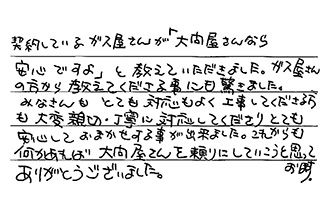 契約しているガス屋さんが「大向屋さんなら
安心ですよ」と教えていただきました。ガス屋さん
の方から教えてくださる事にも驚きました。
みなさんもとても対応もよく工事してくださる方
も大変親切・丁寧に対応してくださりとても
安心しておまかせする事が出来ました。これからも
何かあれば大向屋さんを頼りにしていこうと思って
ありがとうございました。